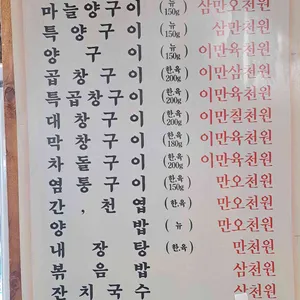 마늘양구이 (뉴 150g) 삼만오천원
특양구이 (뉴 150g) 삼만천원
양구이 (뉴 150g) 이만육천원
곱창구이 (한.육 200g) 이만삼천원
특곱창구이 (한.육 200g) 이만육천원
대창구이 (한.육 200g) 이만칠천원
막창구이 (한.육 180g) 이만육천원
차돌구이 (한.육 200g) 이만육천원
염통구이 (한.육 150g) 만오천원
간, 천엽 만오천원
양밥 (뉴) 만오천원
내장탕 (한.육) 만천원
볶음밥 삼천원
잔치국수 삼천원